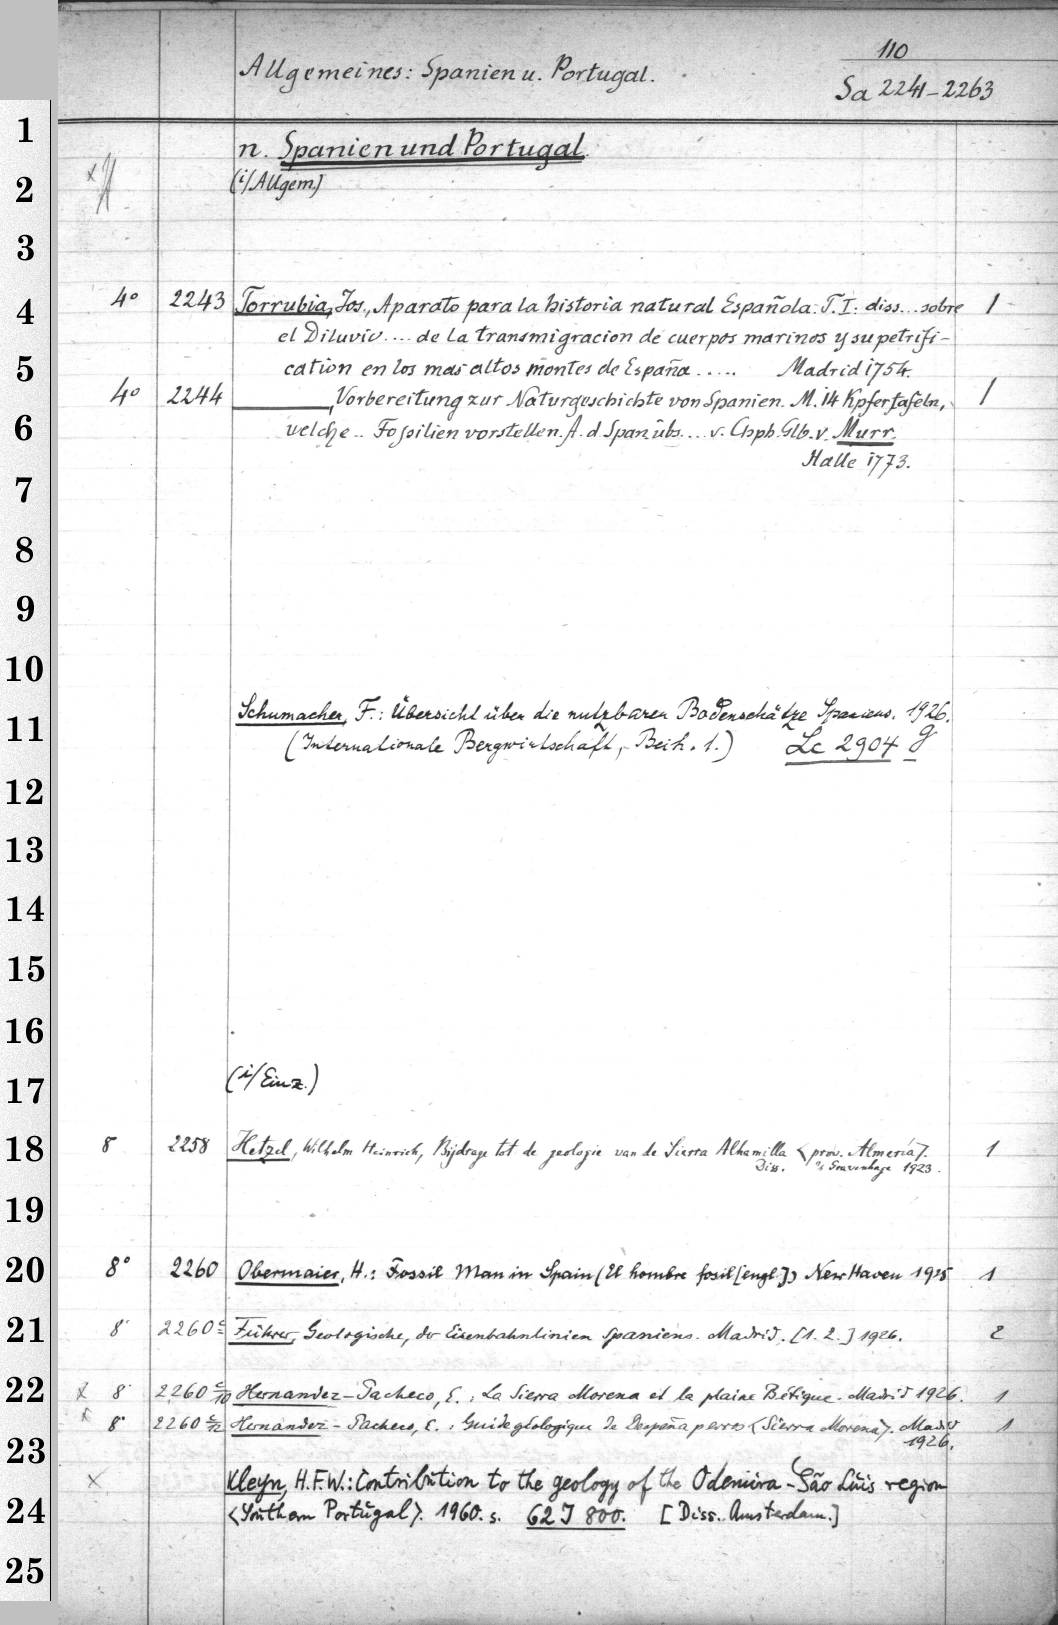 110
Allgemeines: Spanien u. Portugal.
Sa 2241-2263
1
n. Spanien und Portugal.
2
(i/Allgem.)
3
4
4° 2243 Torrubia, Jos., Aparato para la historia natural Española. T.I: diss... sobre 1
el Diluvio .... de la transmigracion de cuerpos marinos y su petrifi-
5
cation en los mas altos montes de España ..... Madrid 1754.
4° 2244 ______, Vorbereitung zur Naturgeschichte von Spanien. M. 14 Kpfertafeln, 1
6
welche .. Fossilien vorstellen. A. d. Span. übs.... v. Chph. Glb. v. Murr.
Halle 1773.
7
8
9
10
Schumacher, F.: Übersicht über die nutzbaren Bodenschätze Spaniens. 1926.
11
(Internationale Bergwirtschaft, Beih. 1.) Lc 2904 g
12
13
14
15
16
17
(i/Einz.)
18
8 2258 Hetzel, Wilhelm Heinrich, Bijdrage tot de geologie van de Sierra Alhamilla <prov. Almería>. 1
Diss. 's Gravenhage 1923.
19
20
8° 2260 Obermaier, H.: Fossil Man in Spain (El hombre fosil [engl.]) New Haven 1925 1
21
8° 2260 c Führer, Geologische, der Eisenbahnlinien Spaniens. Madrid. [1. 2.] 1926. 2
22
x 8° 2260 c/10 Hernandez-Pacheco, E.: La Sierra Morena et la plaine Bétique. Madrid 1926. 1
x 8° 2260 c/12 Hernández-Pacheco, E.: Guide géologique de Despeñaperros <Sierra Morena>. Madrid 1
1926.
23
x Kleyn, H.F.W.: Contribution to the geology of the Odemira-São Luis region
24
<Southern Portugal>. 1960. s. 62 J 800. [Diss. Amsterdam.]
25